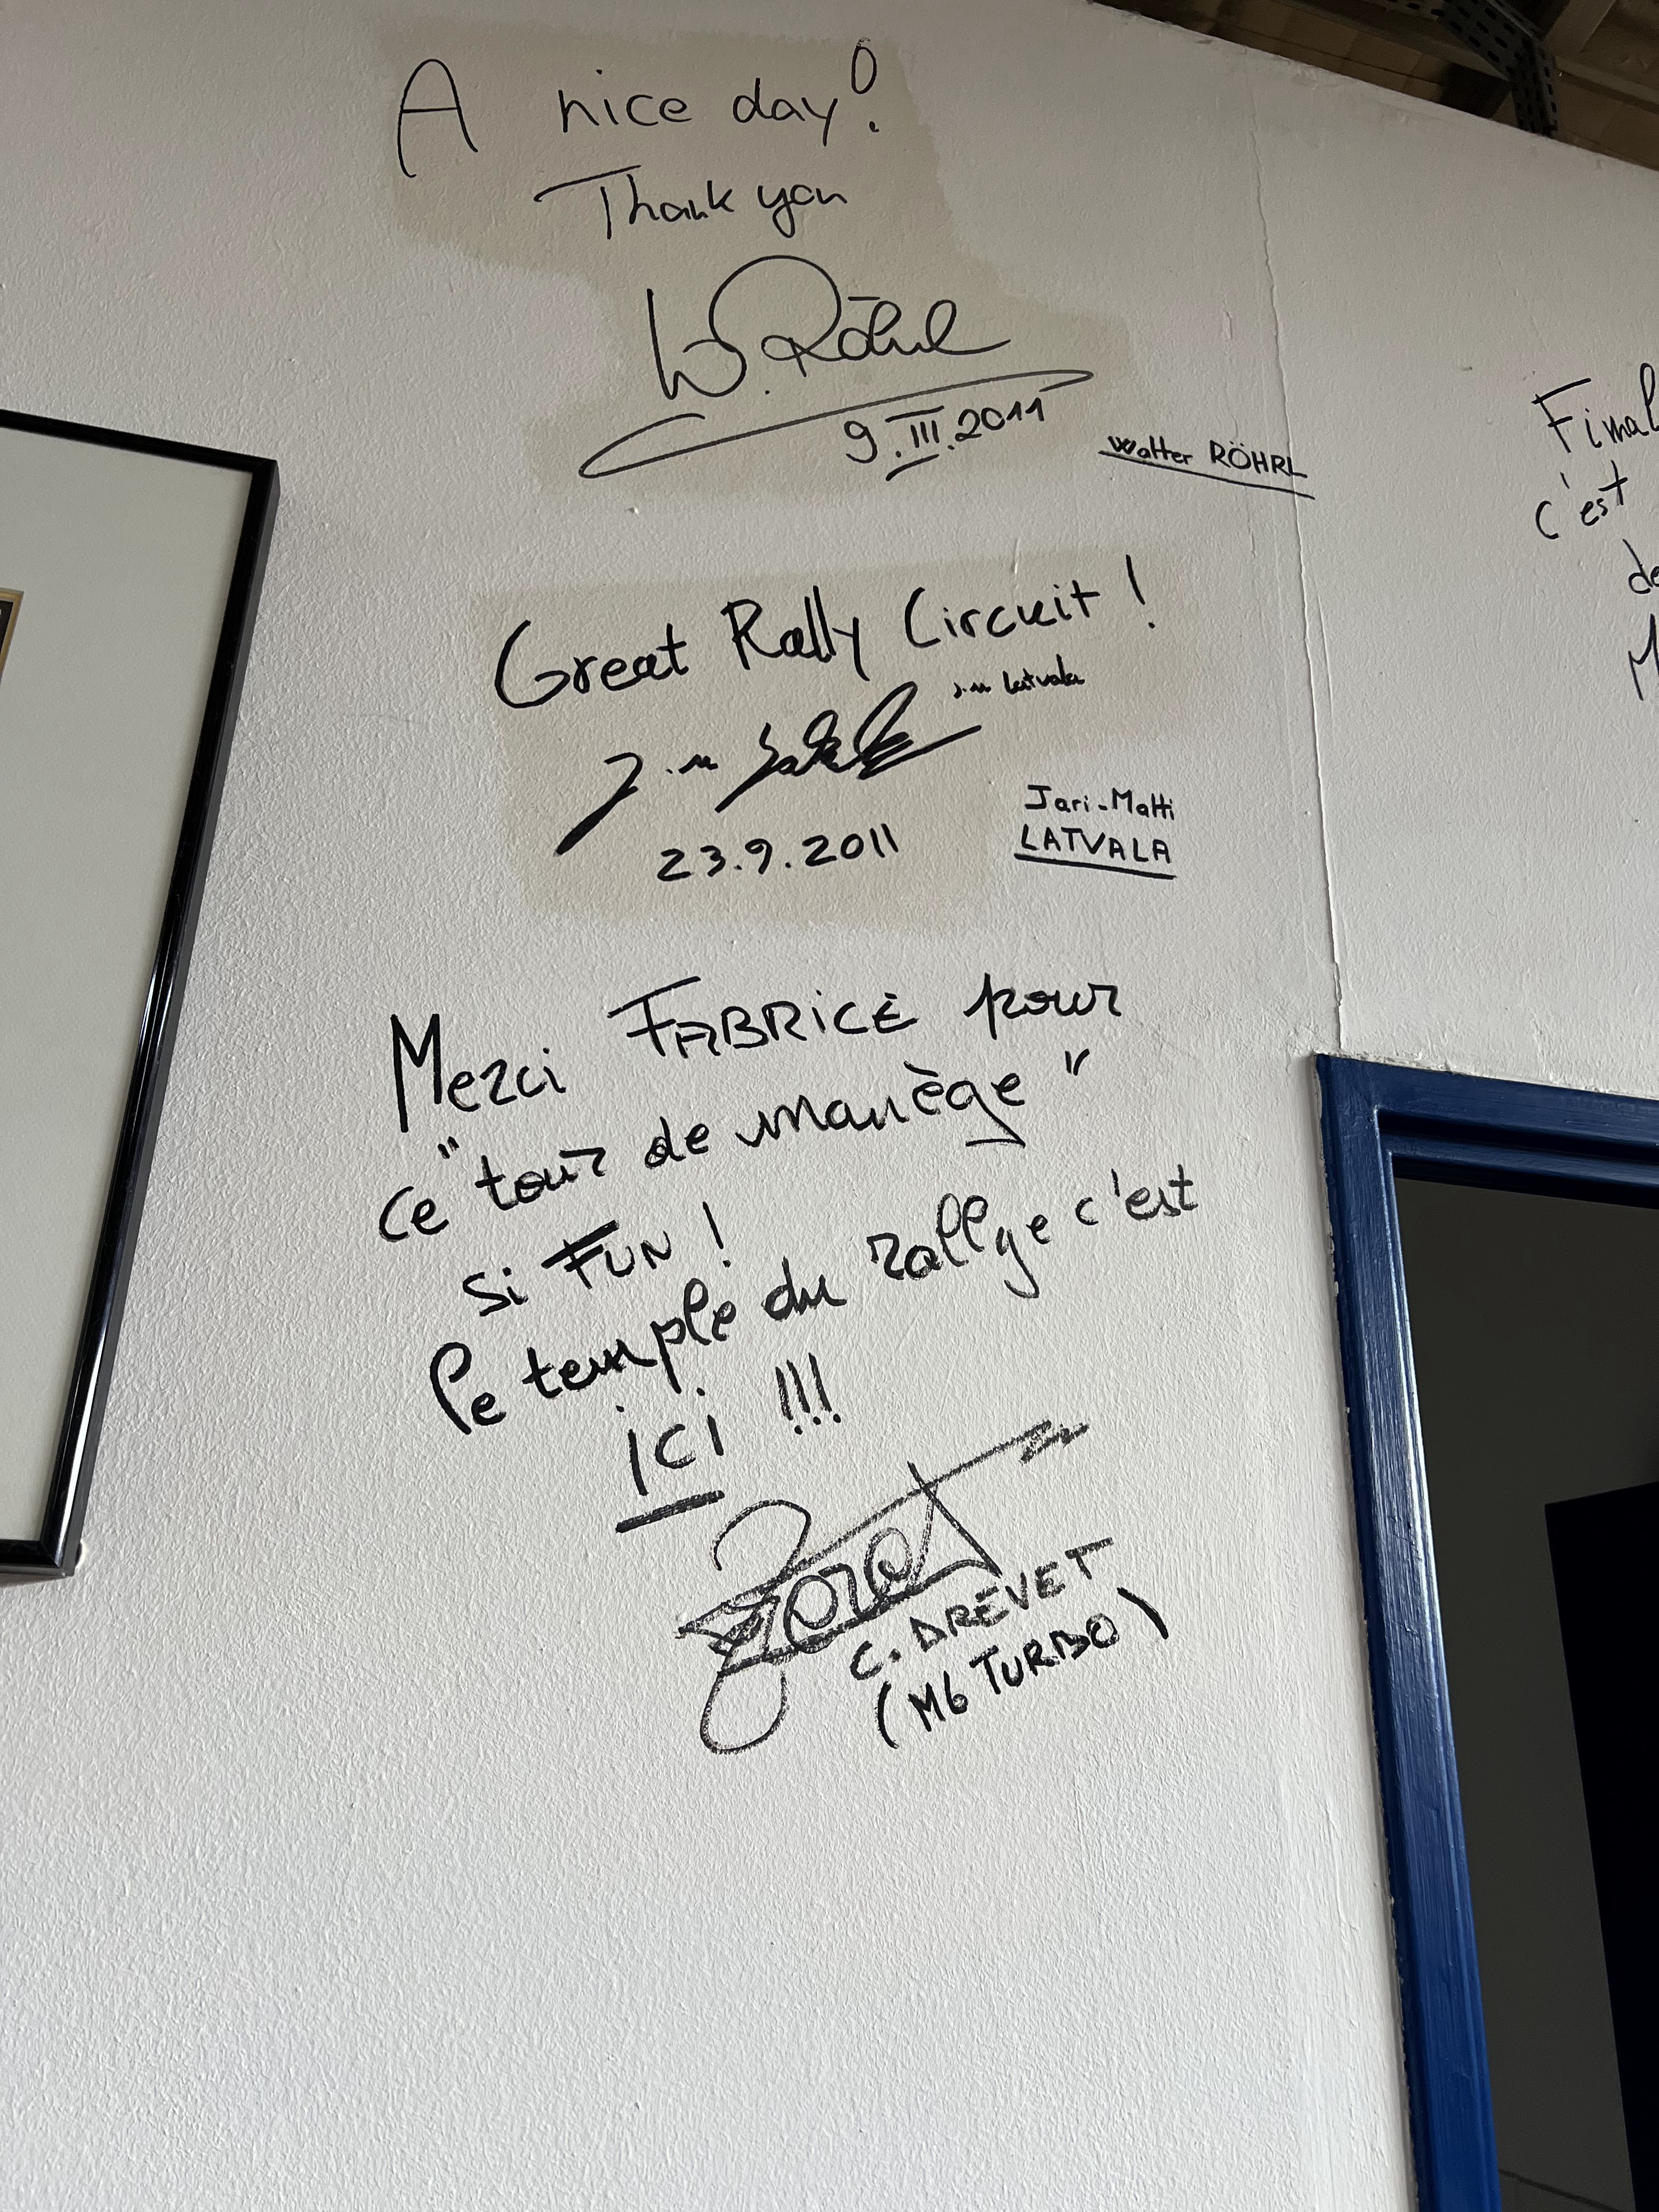 A nice day!
Thank you
W. Röhrl
9.III.2011
Walter RÖHRL
Great Rally Circuit !
J.M Latvala
23.9.2011
Jari-Matti
LATVALA
Merci FABRICE pour
ce "tour de manège"
si FUN !
le temple du rallye c'est
ici !!!
C. DREVET
(M6 TURBO)
c'est